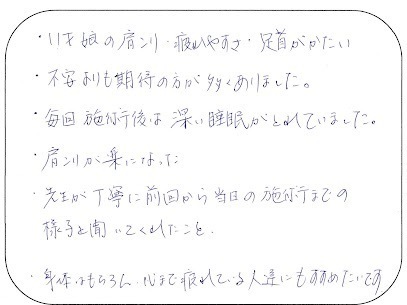 ・11才娘の肩こり・疲れやすさ・足首がかたい
・不安よりも期待の方が多くありました。
・毎回施術後は深い睡眠がとれていました。
・肩こりが楽になった
・先生が丁寧に前回から当日の施術までの
様子を聞いてくれたこと。
・身体はもちろん、心まで疲れている人達にもすすめたいです